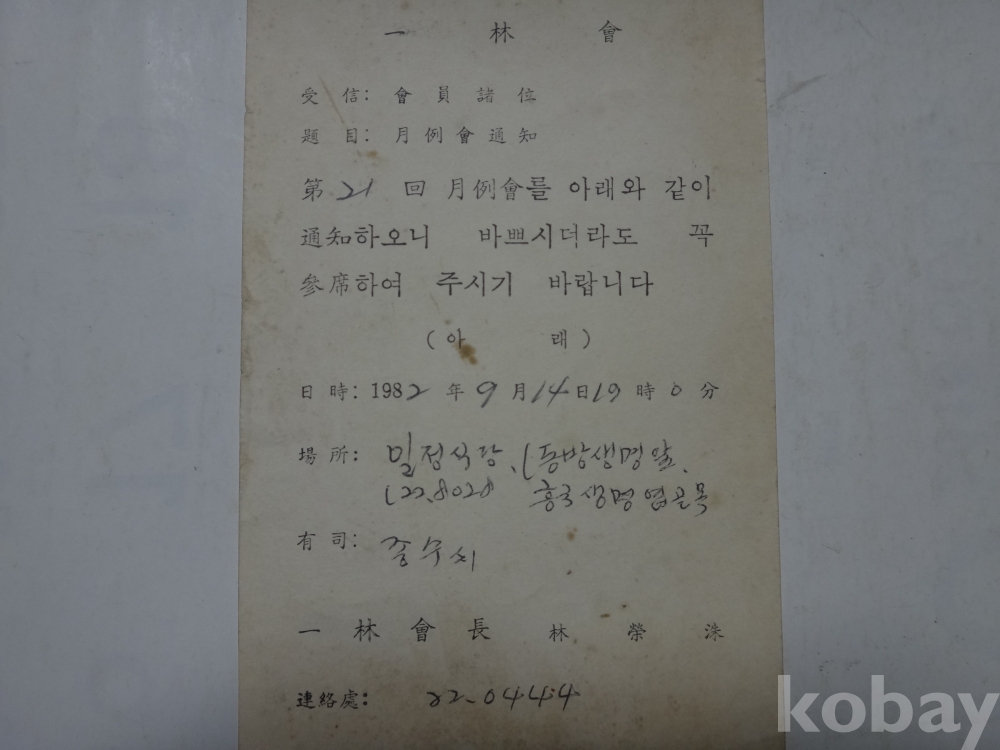 一 林 會
受 信: 會 員 諸 位
題 目: 月 例 會 通 知
第 21 回 月例會를 아래와 같이
通知하오니 바쁘시더라도 꼭
參席하여 주시기 바랍니다
( 아 래 )
日 時: 1982 年 9 月 14 日 19 時 0 分
場 所: 밀정식당, (동방생명앞,
(22.8028 흥국생명 옆골목
有 司:
一 林 會 長 林 榮 洙
連絡處: 22-0444
kobay